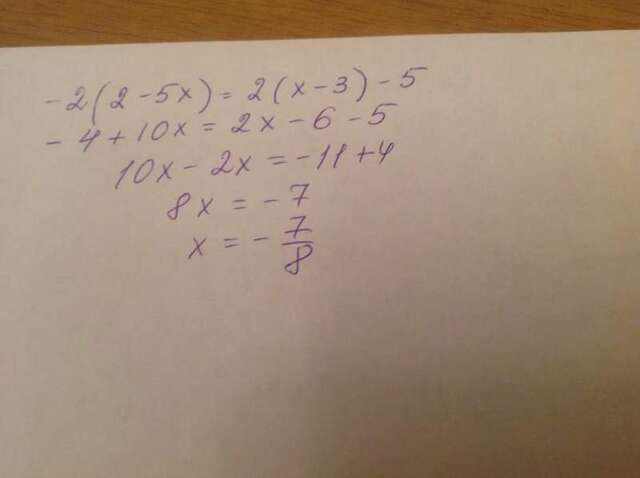 -2(2-5x)=2(x-3)-5
-4+10x=2x-6-5
10x-2x=-11+4
8x=-7
x=-7/8